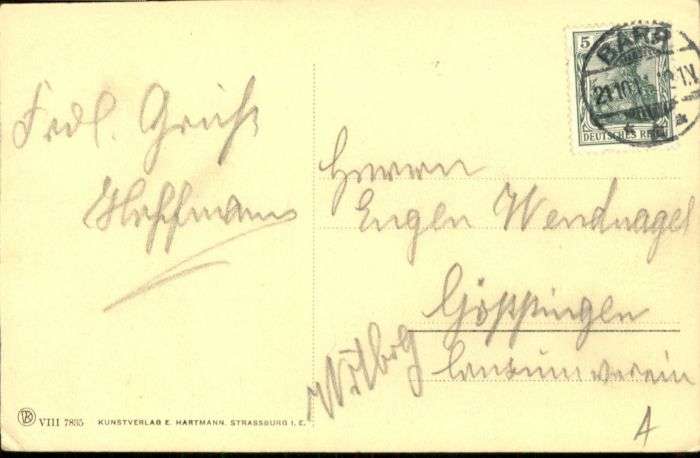 Frdl. Gruß
Hoffmann
Herrn
Eugen Wendnagel
Göppingen
Consumverein
5
DEUTSCHES REICH
BARR
VIII 7835 KUNSTVERLAG E. HARTMANN, STRASSBURG I. E.
A